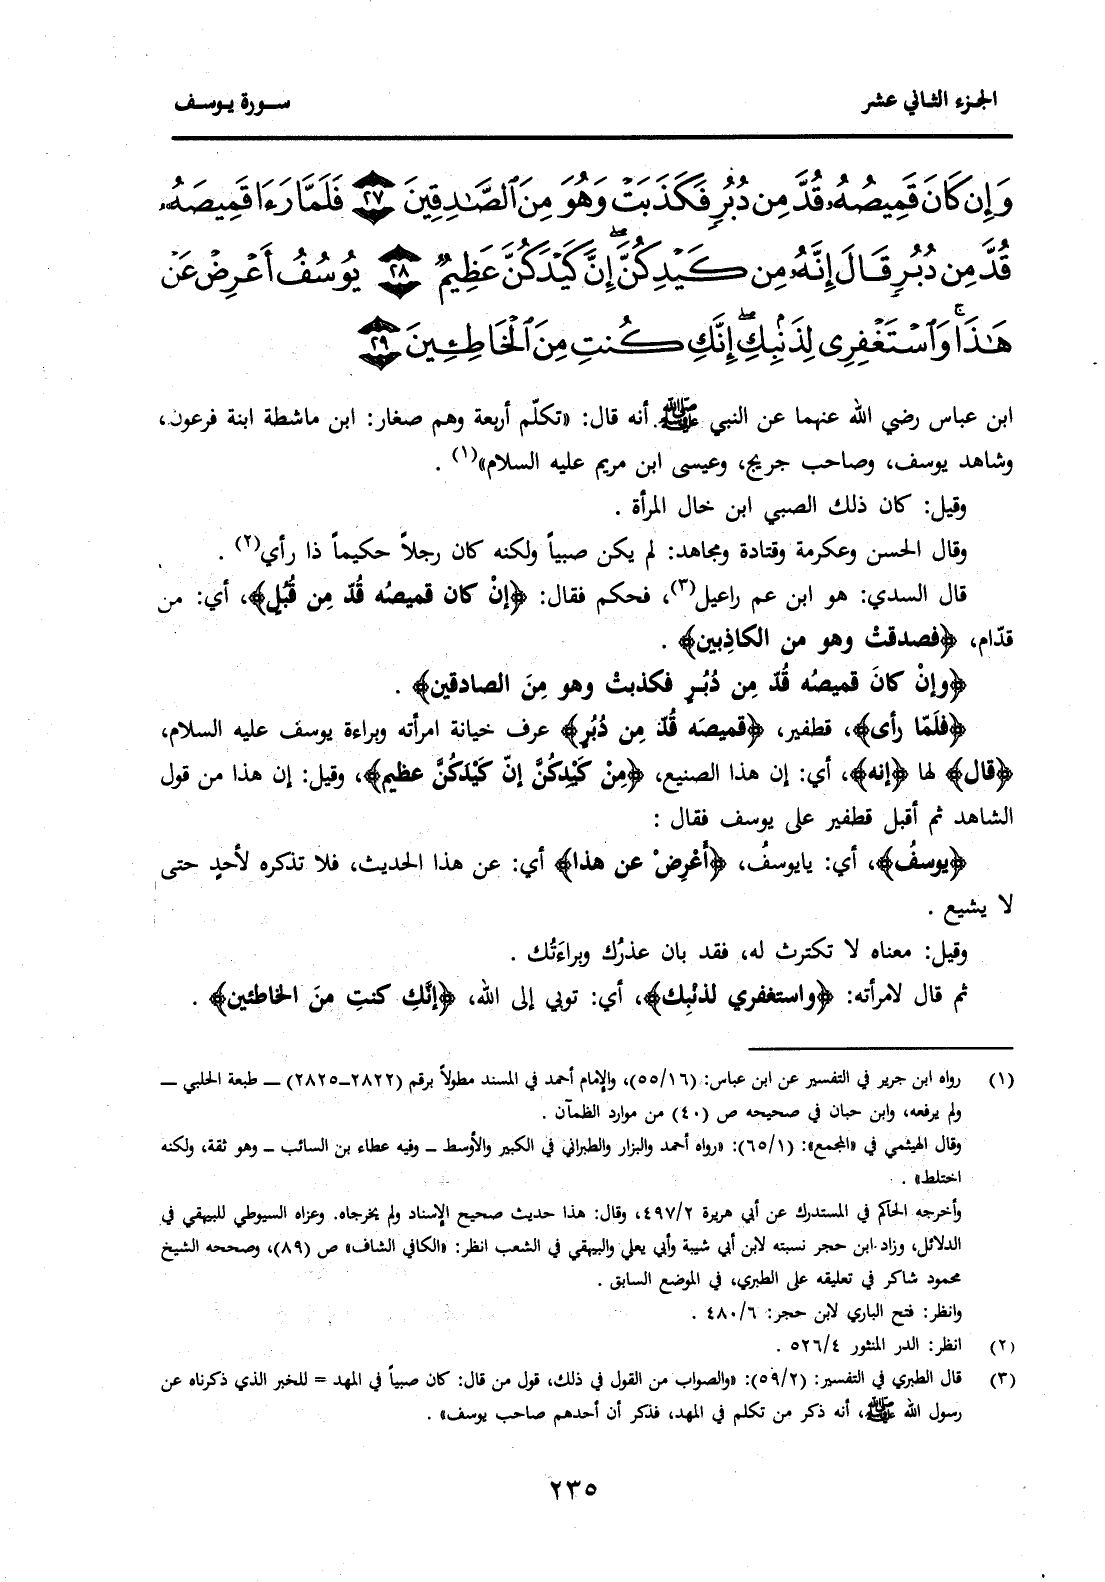 الجزء الثاني عشر
سورة يوسف
وَإِن كَانَ قَمِيصُهُۥ قُدَّ مِن دُبُرٍ فَكَذَبَتْ وَهُوَ مِنَ ٱلصَّٰدِقِينَ ٢٧ فَلَمَّا رَءَا قَمِيصَهُۥ
قُدَّ مِن دُبُرٍ قَالَ إِنَّهُۥ مِن كَيْدِكُنَّ إِنَّ كَيْدَكُنَّ عَظِيمٌ ٢٨ يُوسُفُ أَعْرِضْ عَنْ
هَٰذَا وَٱسْتَغْفِرِى لِذَنۢبِكِ إِنَّكِ كُنتِ مِنَ ٱلْخَاطِـِٔينَ ٢٩
ابن عباس رضي الله عنهما عن النبي ﷺ أنه قال: «تكلّم أربعة وهم صغار: ابن ماشطة ابنة فرعون،
وشاهد يوسف، وصاحب جريج، وعيسى ابن مريم عليه السلام»(١) .
وقيل: كان ذلك الصبي ابن خال المرأة .
وقال الحسن وعكرمة وقتادة ومجاهد: لم يكن صبياً ولكنه كان رجلاً حكيماً ذا رأي(٢) .
قال السدي: هو ابن عم راعيل(٣)، فحكم فقال: ﴿إنْ كان قميصُه قُدّ مِن قُبُلٍ﴾، أي: من
قدّام، ﴿فصدقتْ وهو من الكاذِبين﴾ .
﴿وإنْ كانَ قميصُه قُدّ مِن دُبُرٍ فكذبتْ وهو مِنَ الصادقين﴾ .
﴿فلَمّا رأى﴾، قطفير، ﴿قميصَه قُدّ مِن دُبُرٍ﴾ عرف خيانة امرأته وبراءة يوسف عليه السلام،
﴿قال﴾ لها ﴿إنه﴾، أي: إن هذا الصنيع، ﴿مِنْ كَيْدِكُنَّ إنّ كَيْدَكُنَّ عظيم﴾، وقيل: إن هذا من قول
الشاهد ثم أقبل قطفير على يوسف فقال :
﴿يوسفُ﴾، أي: يايوسفُ، ﴿أَعْرِضْ عن هذا﴾ أي: عن هذا الحديث، فلا تذكره لأحدٍ حتى
لا يشيع .
وقيل: معناه لا تكترث له، فقد بان عذرُك وبراءَتُك .
ثم قال لامرأته: ﴿واستغفري لذنْبِك﴾، أي: توبي إلى الله، ﴿إنَّكِ كنتِ منَ الخاطئين﴾ .
(١) رواه ابن جرير في التفسير عن ابن عباس: (٥٥/١٦)، والإمام أحمد في المسند مطولاً برقم (٢٨٢٢ــ٢٨٢٥) ــ طبعة الحلبي ــ
ولم يرفعه، وابن حبان في صحيحه ص (٤٠) من موارد الظمآن .
وقال الهيثمي في «المجمع»: (٦٥/١): «رواه أحمد والبزار والطبراني في الكبير والأوسط ــ وفيه عطاء بن السائب ــ وهو ثقة، ولكنه
اختلط» .
وأخرجه الحاكم في المستدرك عن أبي هريرة ٤٩٧/٢، وقال: هذا حديث صحيح الإسناد ولم يخرجاه. وعزاه السيوطي للبيهقي في
الدلائل، وزاد ابن حجر نسبته لابن أبي شيبة وأبي يعلى والبيهقي في الشعب انظر: «الكافي الشاف» ص (٨٩)، وصححه الشيخ
محمود شاكر في تعليقه على الطبري، في الموضع السابق .
وانظر: فتح الباري لابن حجر: ٤٨٠/٦ .
(٢) انظر: الدر المنثور ٥٢٦/٤ .
(٣) قال الطبري في التفسير: (٥٩/٢): «والصواب من القول في ذلك، قول من قال: كان صبياً في المهد = للخبر الذي ذكرناه عن
رسول الله ﷺ، أنه ذكر من تكلم في المهد، فذكر أن أحدهم صاحب يوسف» .
٢٣٥